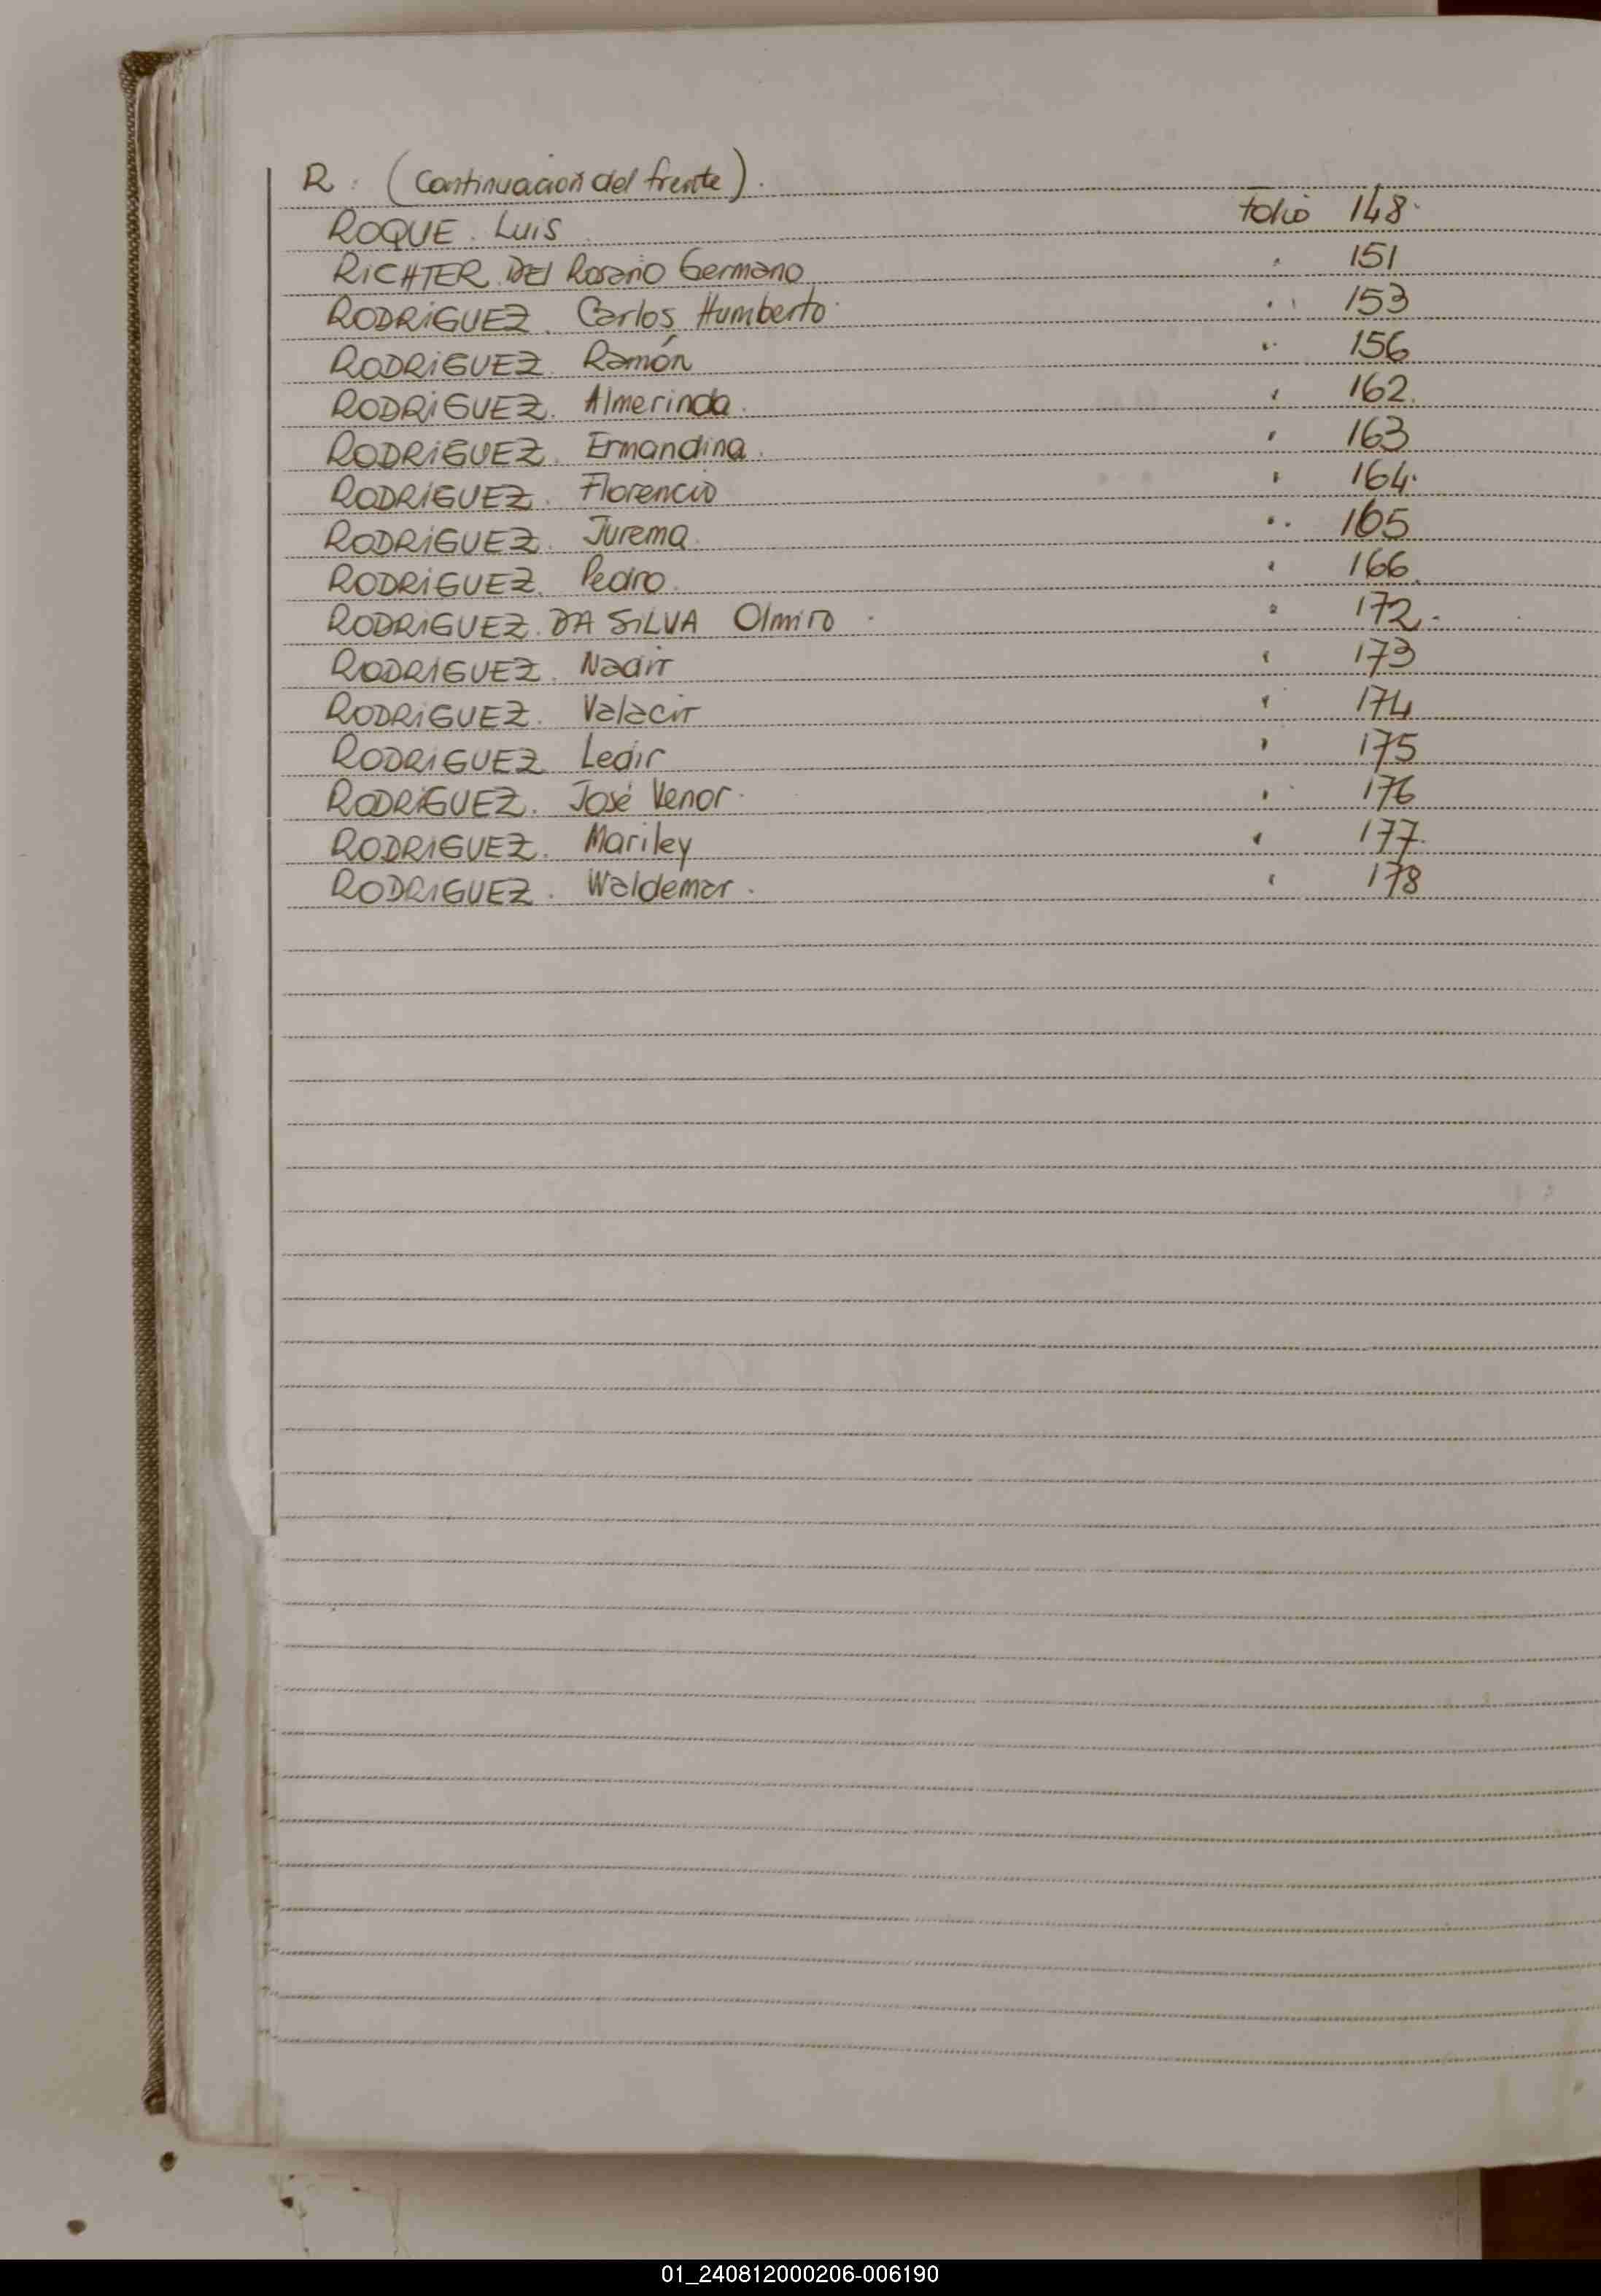 R. (Continuación del frente).
ROQUE. Luis folio 148.
RICHTER. DEL Rosario Germano " 151
RODRIGUEZ. Carlos Humberto " 153
RODRIGUEZ. Ramón " 156
RODRIGUEZ. Almerinda. " 162.
RODRIGUEZ. Ermandina. " 163
RODRIGUEZ. Florencio " 164.
RODRIGUEZ. Jurema. " 165
RODRIGUEZ. Pedro. " 166.
RODRIGUEZ. DA SILVA Olmiro. " 172.
RODRIGUEZ. Nadir " 173
RODRIGUEZ. Valacir " 174
RODRIGUEZ Ledir " 175
RODRIGUEZ. José Venor. " 176
RODRIGUEZ. Mariley " 177.
RODRIGUEZ. Waldemar. " 178
01_240812000206-006190